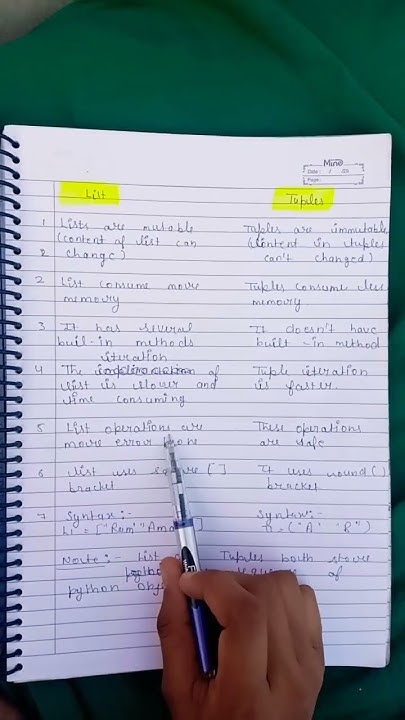 Mine
Date : / /20
Page :
List Tuples
1 Lists are mutable Tuples are immutable
(content of list can (content in tuples
2 change) can't changed)
2 List consume more Tuples consume less
memory memory
3 It has several It doesn't have
buil-in methods built-in method
iteration
4 The of Tuple iteration
list is slower and is faster.
time consuming
5 List operations are These operations
more error are safe
6 List uses [ ] It uses round ( )
bracket bracket
7 Syntax:- Syntax:-
= ["Ram" ] = ("A" "B")
Note:- List Tuples both store
of
python